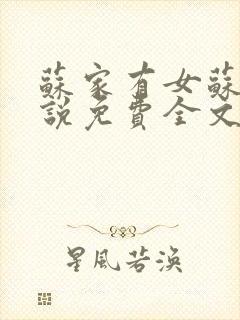 蘇家有女蘇
說免費全文
星風若渙